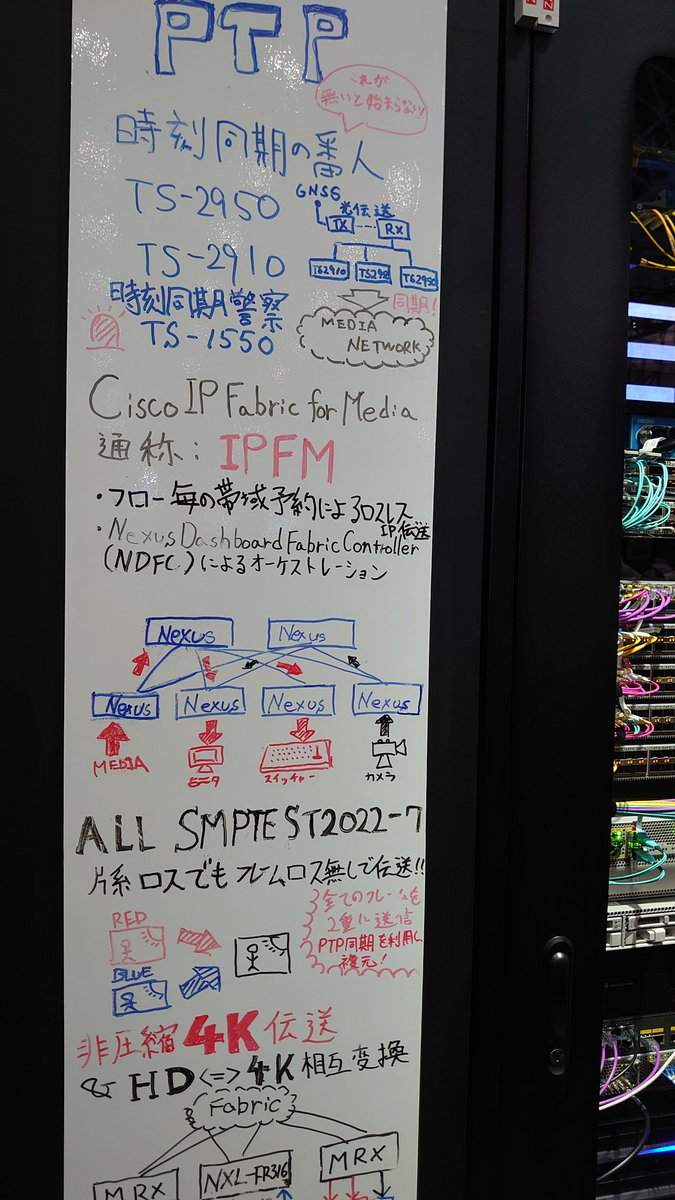 PTP
これが
無いと始まらない!!
時刻同期の番人
TS-2950
TS-2910
GNSS
光伝送
TX
RX
TS2910
TS2950
同期!
MEDIA
NETWORK
時刻同期警察
TS-1550
Cisco IP Fabric for Media
通称: IPFM
・フロー毎の帯域予約によるロスレス
IP伝送
・Nexus Dashboard Fabric Controller
(NDFC)によるオーケストレーション
Nexus
Nexus
Nexus
Nexus
Nexus
Nexus
MEDIA
モニタ
スイッチャー
カメラ
ALL SMPTE ST2022-7
片系ロスでもフレームロス無しで伝送!!
RED
BLUE
全てのフレームを
2重に送信
PTP同期を利用し、
復元!
非圧縮4K伝送
& HD<=>4K相互変換
Fabric
MRX
NXL-FR316
MRX